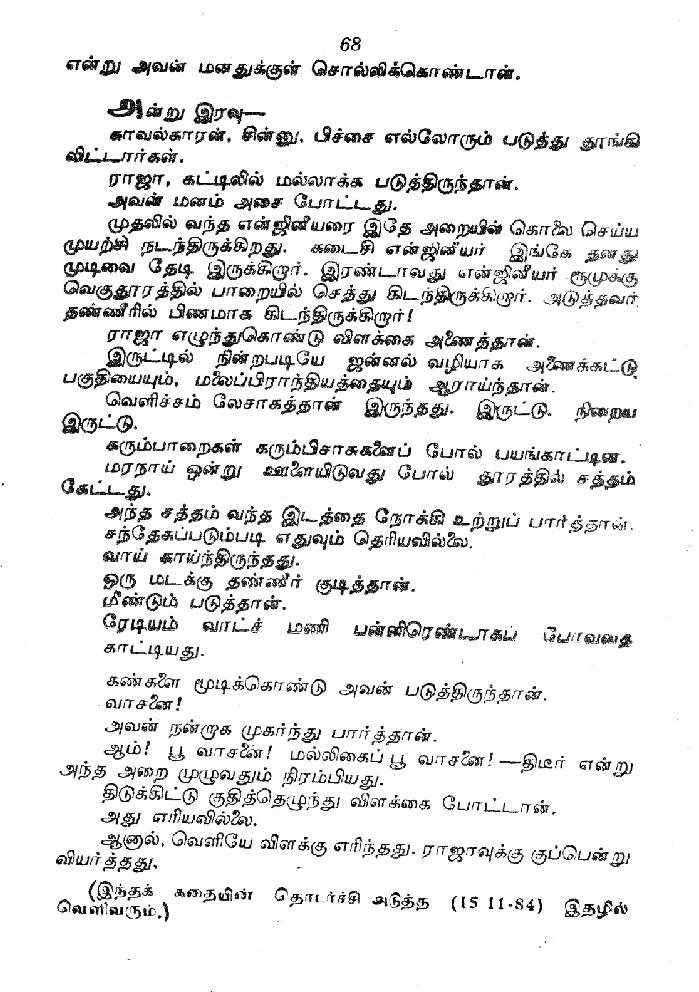 68
என்று அவன் மனதுக்குள் சொல்லிக்கொண்டான்.
அன்று இரவு—
காவல்காரன், சின்னு, பிச்சை எல்லோரும் படுத்து தூங்கி
விட்டார்கள்.
ராஜா, கட்டிலில் மல்லாக்க படுத்திருந்தான்.
அவன் மனம் அசை போட்டது.
முதலில் வந்த என்ஜினீயரை இதே அறையில் கொலை செய்ய
முயற்சி நடந்திருக்கிறது. கடைசி என்ஜினீயர் இங்கே தனது
முடிவை தேடி இருக்கிறார். இரண்டாவது என்ஜினீயர் ரூமுக்கு
வெகுதூரத்தில் பாறையில் செத்து கிடந்திருக்கிறார். அடுத்தவர்
தண்ணீரில் பிணமாக கிடந்திருக்கிறார்!
ராஜா எழுந்துகொண்டு விளக்கை அணைத்தான்.
இருட்டில் நின்றபடியே ஜன்னல் வழியாக அணைக்கட்டு
பகுதியையும், மலைப்பிராந்தியத்தையும் ஆராய்ந்தான்.
வெளிச்சம் லேசாகத்தான் இருந்தது. இருட்டு. நிறைய
இருட்டு.
கரும்பாறைகள் கரும்பிசாசுகளைப் போல் பயங்காட்டின.
மரநாய் ஒன்று ஊளையிடுவது போல் தூரத்தில் சத்தம்
கேட்டது.
அந்த சத்தம் வந்த இடத்தை நோக்கி உற்றுப் பார்த்தான்.
சந்தேகப்படும்படி எதுவும் தெரியவில்லை.
வாய் காய்ந்திருந்தது.
ஒரு மடக்கு தண்ணீர் குடித்தான்.
மீண்டும் படுத்தான்.
ரேடியம் வாட்ச் மணி பன்னிரெண்டாகப் போவதை
காட்டியது.
கண்களை மூடிக்கொண்டு அவன் படுத்திருந்தான்.
வாசனை!
அவன் நன்றாக முகர்ந்து பார்த்தான்.
ஆம்! பூ வாசனை! மல்லிகைப் பூ வாசனை!—திடீர் என்று
அந்த அறை முழுவதும் நிரம்பியது.
திடுக்கிட்டு குதித்தெழுந்து விளக்கை போட்டான்.
அது எரியவில்லை.
ஆனால், வெளியே விளக்கு எரிந்தது. ராஜாவுக்கு குப்பென்று
வியர்த்தது.
(இந்தக் கதையின் தொடர்ச்சி அடுத்த (15 11-84) இதழில்
வெளிவரும்.)